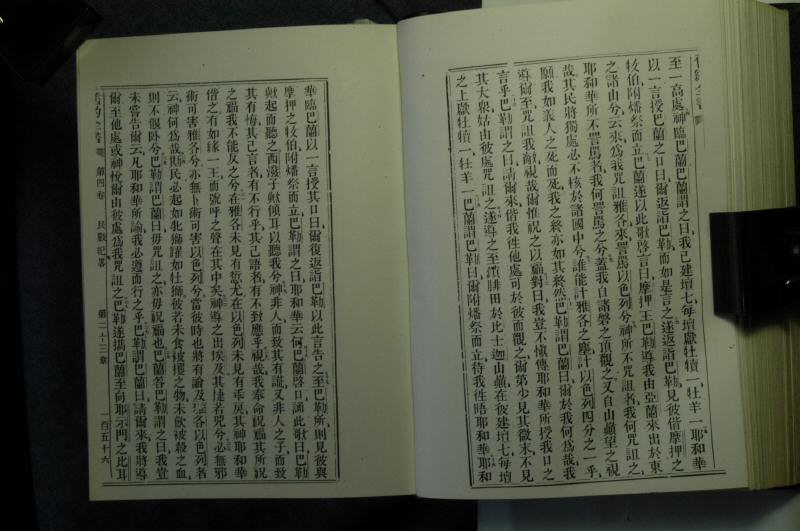 至一高處神臨巴蘭巴蘭謂之曰我已建壇七每壇獻牡犢一牡羊一耶和華
以一言授巴蘭之口曰爾返詣巴勒而如是言之遂返詣巴勒見彼偕摩押之
牧伯附燔祭而立巴蘭遂以此歌啓言曰摩押王巴勒導我由亞蘭來出於東
之諸山分云來為我咒詛雅各來詈罵以色列分神所不咒詛者我何咒詛之
耶和華所不詈罵者我何詈罵之分蓋我自諸磐之頂觀之又自山巔望之視
哉其民將獨處必不核於諸國中分誰能計雅各之塵計以色列四分之一乎
願我如義人之死而死我之終亦如其終然巴勒謂巴蘭曰爾於我何為哉我
導爾至咒詛我敵視哉爾惟祝之以福對曰我豈不慎傳耶和華所授我口之
言乎巴勒謂之曰請爾來偕我徃他處可於彼而觀之爾第少見其微末不見
其大衆姑由彼處咒詛之遂導之至瑣腓田於比士迦山巔在彼建壇七每壇
之上獻牡犢一牡羊一巴蘭謂巴勒曰爾附燔祭而立待我徃晤耶和華耶和
華臨巴蘭以一言授其口曰爾復返詣巴勒以此言告之至巴勒所則見彼與
摩押之牧伯附燔祭而立巴勒謂之曰耶和華云何巴蘭啓口誦此歌曰巴勒
歟起而聽之西潑子歟傾耳以聽我分神非人而致其有謊又非人之子而致
其有悔其已言者有不行乎其已語者有不對應乎視哉我奉命祝福其所祝
之福我不能反之分在雅各未見有愆尤在以色列未見有乖戾其神耶和華
偕之有如緣一王而號呼之聲在其中矣神導之出埃及其㨗若兕分必無邪
術可害雅各分亦無卜術可害以色列分當彼時也將有論及雅各以色列者
云神何為哉斯民必起如牝獅躍如牡獅彼若未食被攫之物未飲被殺之血
則不偃臥分巴勒謂巴蘭曰毋咒詛之亦毋祝福也巴蘭答巴勒謂之曰我豈
未嘗告爾云凡耶和華所諭我必遵而行之乎巴勒謂巴蘭曰請爾來我將導
爾至他處或神悅爾由彼處為我咒詛之巴勒遂攜巴蘭至向耶示門之比耳
舊約全書 第四卷 民數紀畧 第二十三章 一百五十六